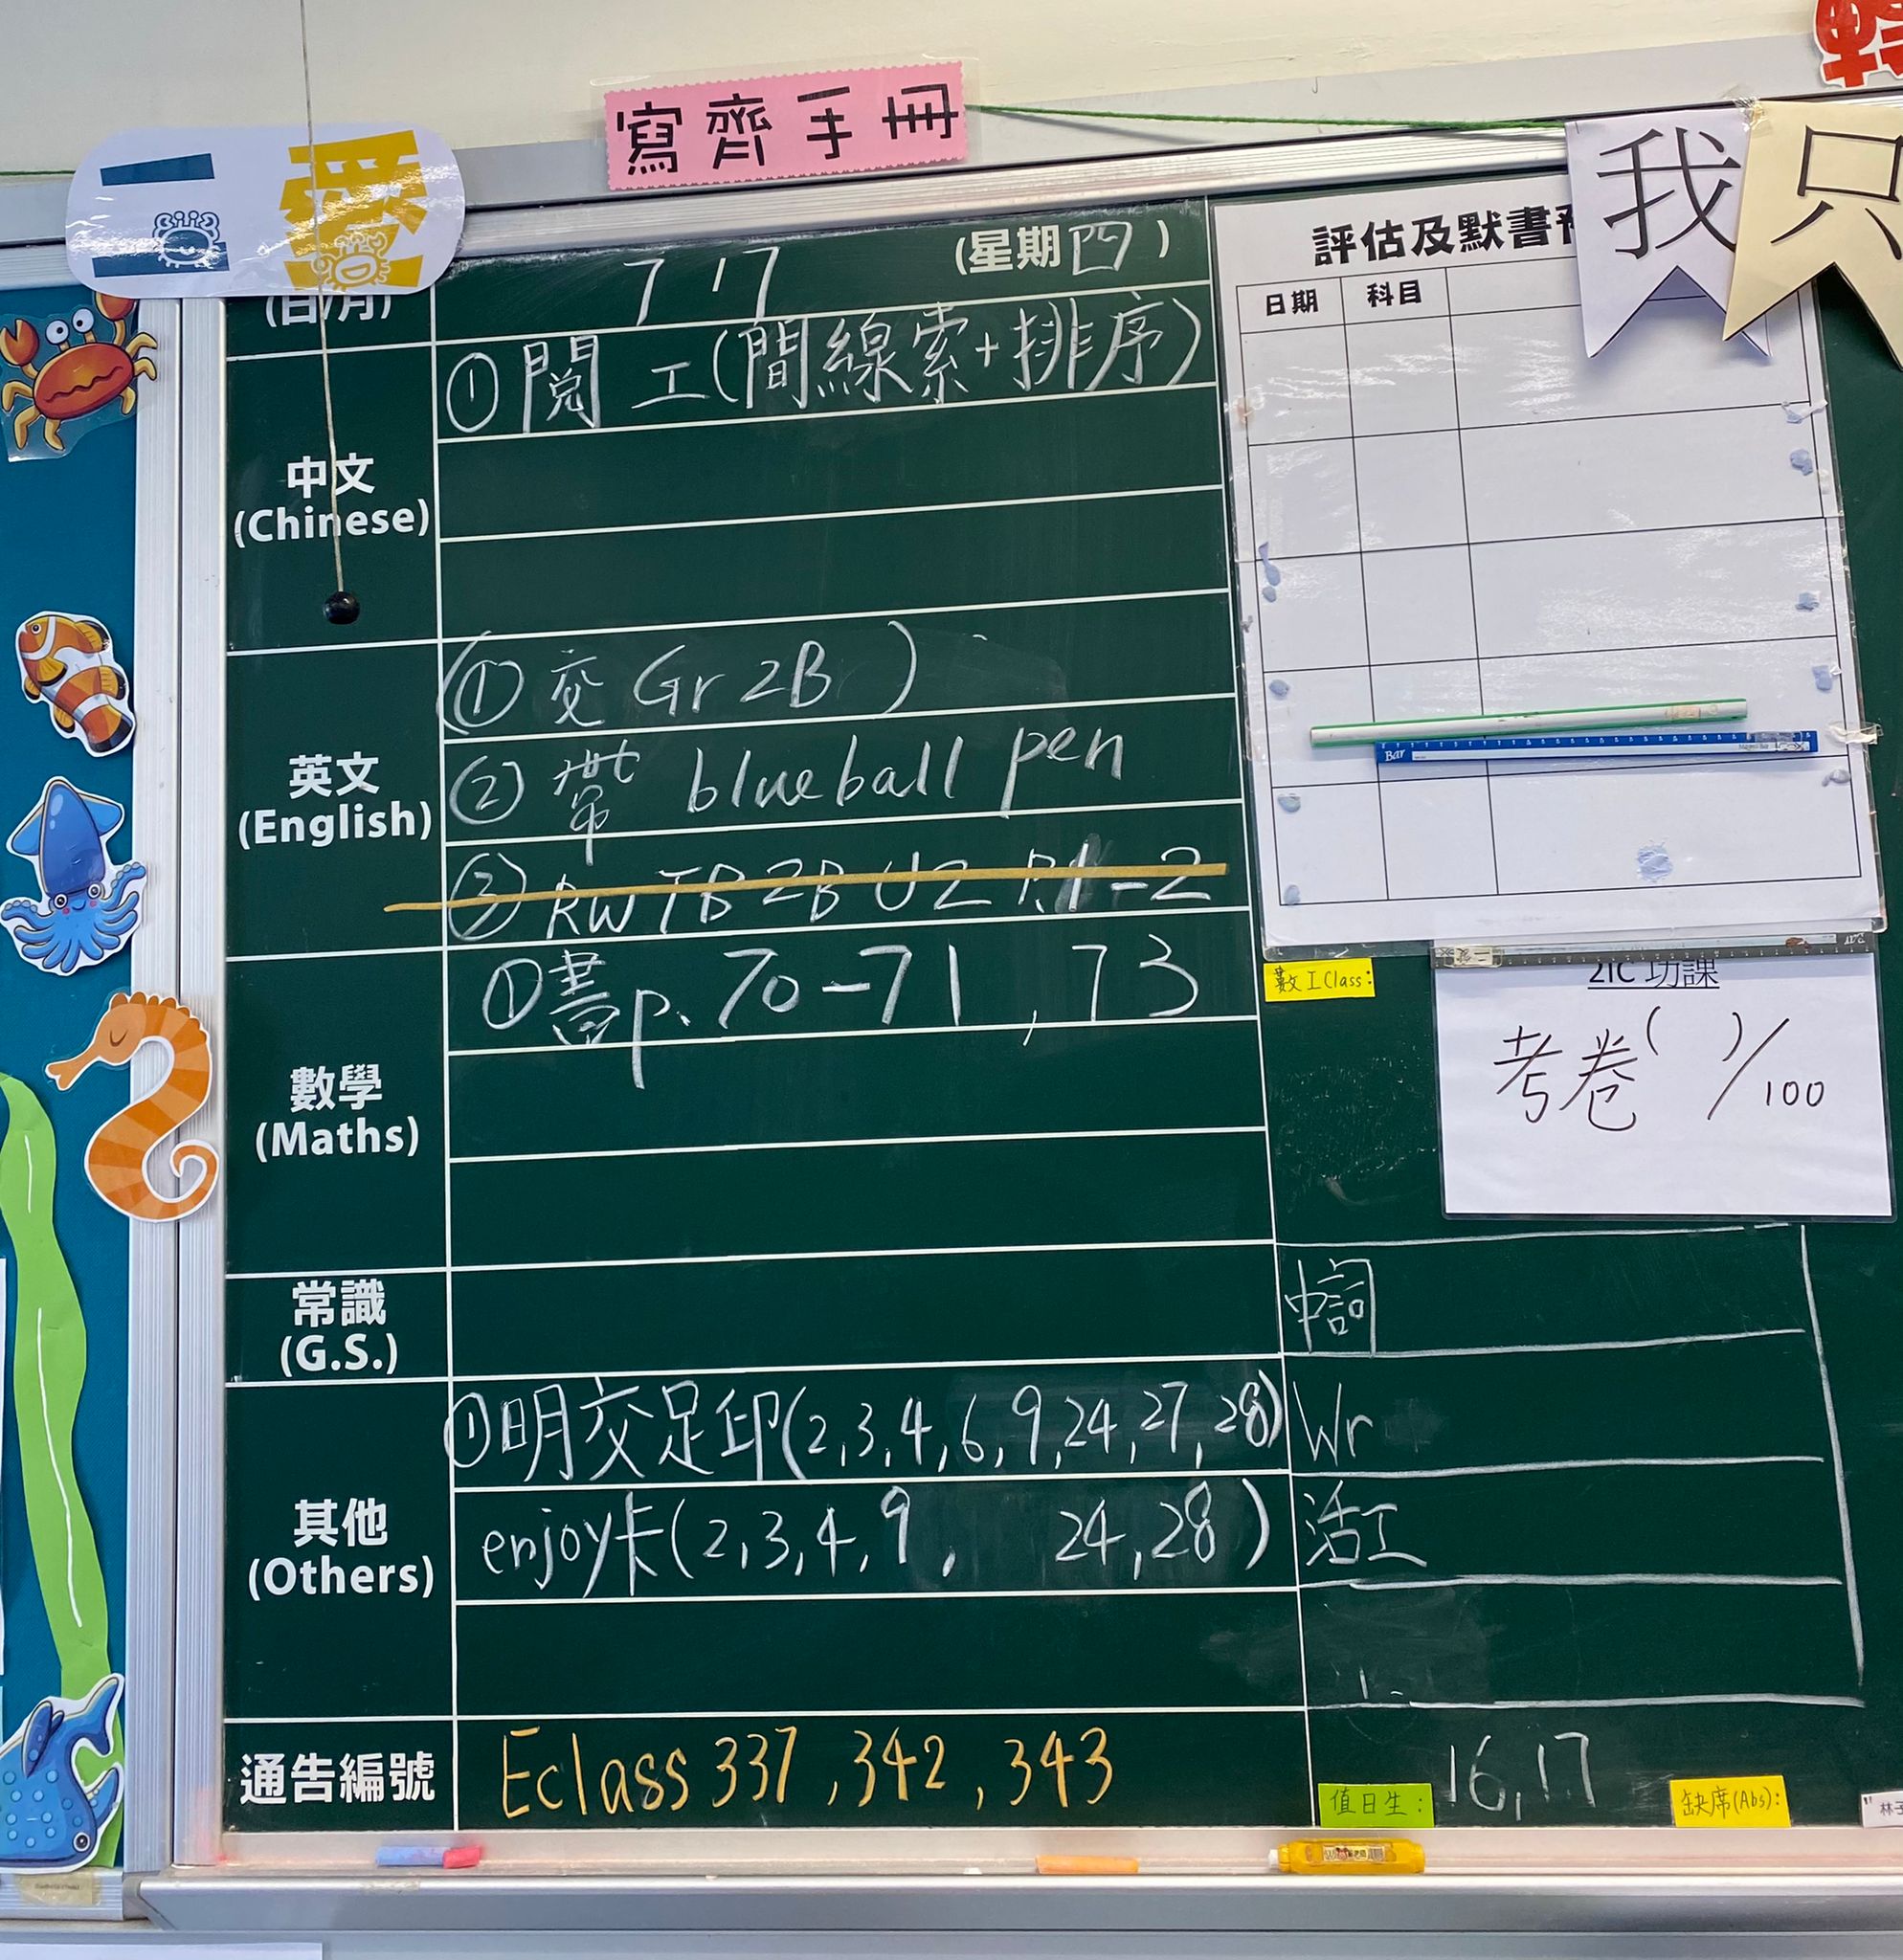 寫齊手冊
二愛
我只
(日/月) 7 17 (星期四)
中文
(Chinese)
①閱 工(間線索+排序)
英文
(English)
(① 交 Gr 2B )
② 帶 blue ball pen
③ RW TB 2B U2 P.1-2
數學
(Maths)
①書p. 70-71, 73
常識
(G.S.)
其他
(Others)
①明交足印(2,3,4,6,9,24,27,28)
enjoy卡(2,3,4,9, 24,28)
通告編號
Eclass 337,342,343
評估及默書
日期 科目
Bar
數工Class:
2IC 功課
考卷( )/100
中詞
Wr
活工
值日生: 16,17
缺席(Abs):